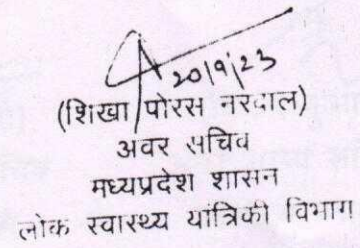 20/9/23
(शिखा पोरस नरवाल)
अवर सचिव
मध्यप्रदेश शासन
लोक स्वास्थ्य यांत्रिकी विभाग